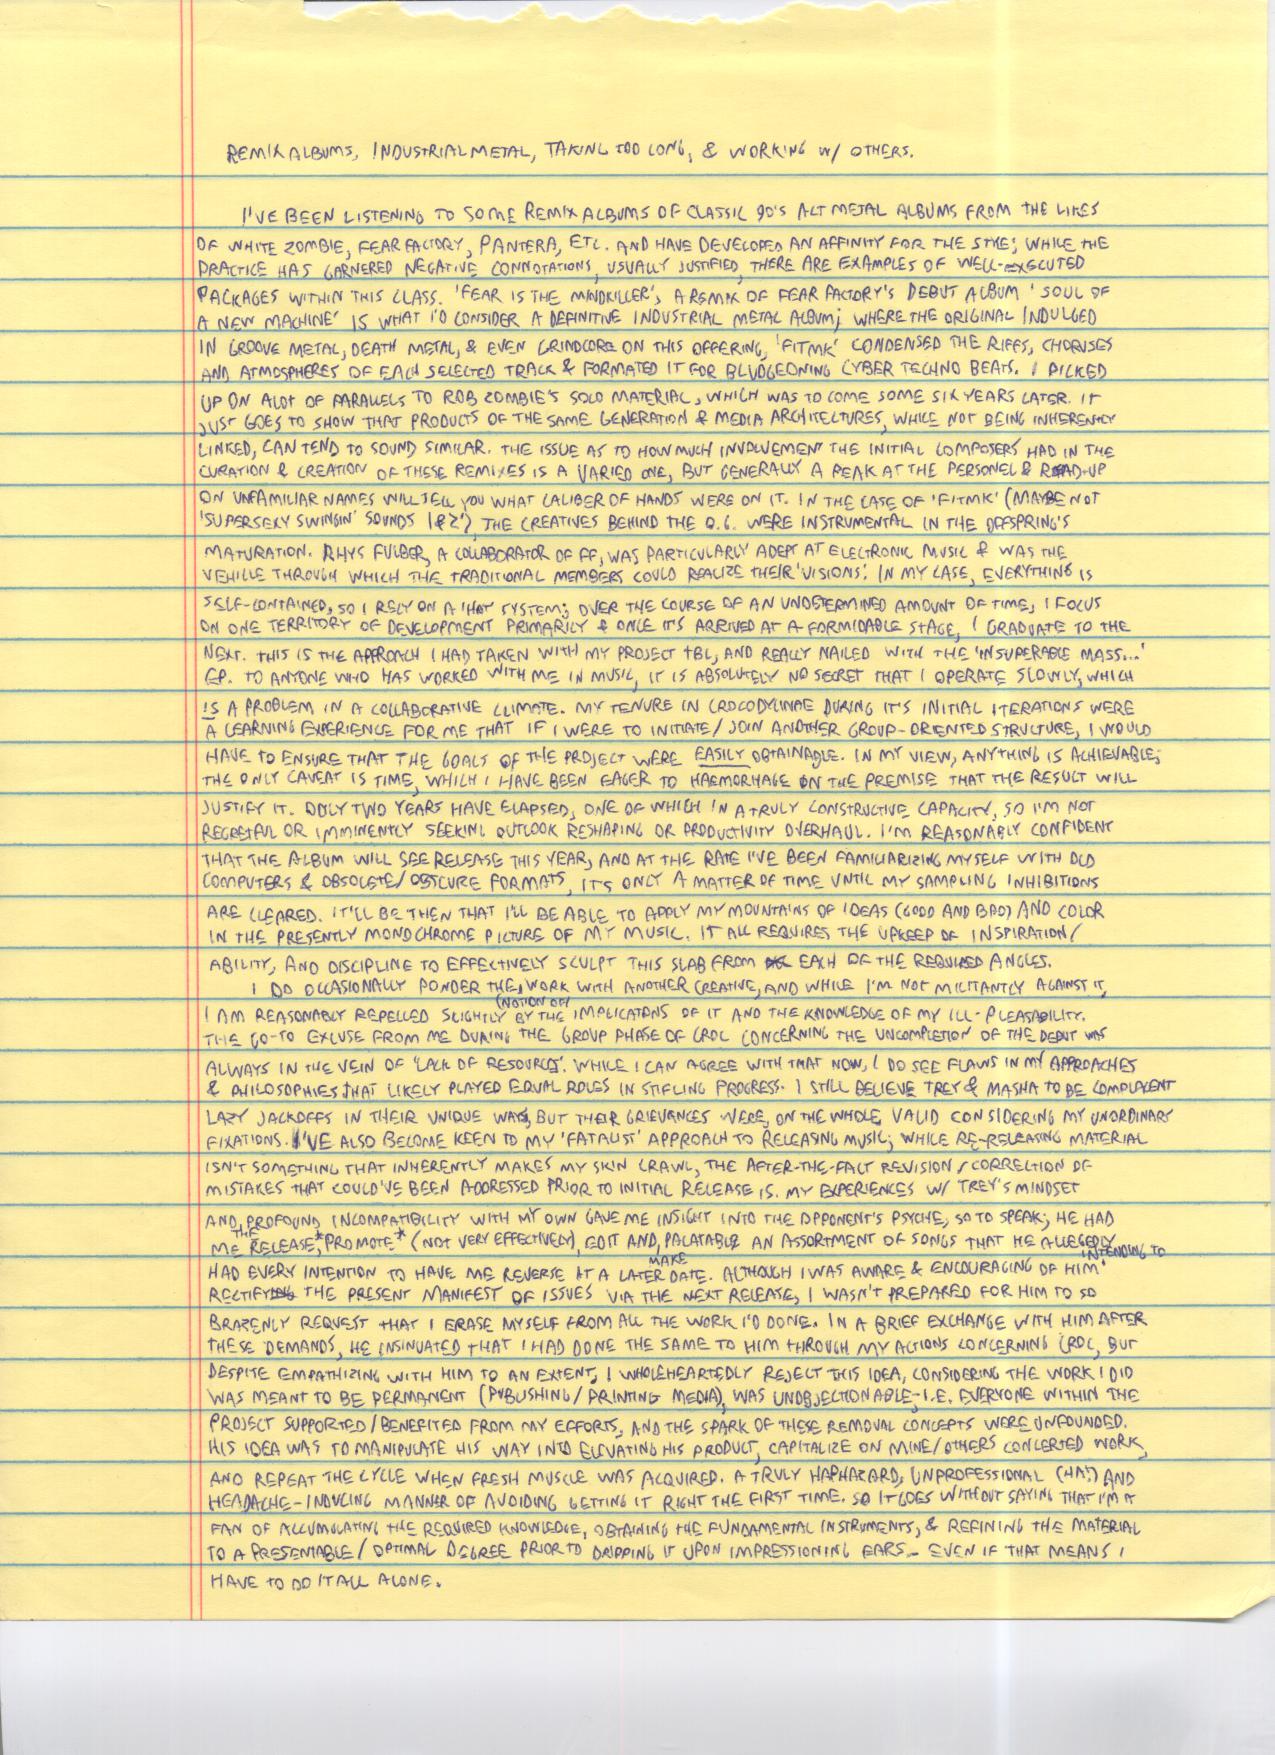 REMIX ALBUMS, INDUSTRIAL METAL, TAKING TOO LONG, & WORKING W/ OTHERS.
I'VE BEEN LISTENING TO SOME REMIX ALBUMS OF CLASSIC 90'S ALT METAL ALBUMS FROM THE LIKES
OF WHITE ZOMBIE, FEAR FACTORY, PANTERA, ETC. AND HAVE DEVELOPED AN AFFINITY FOR THE STYLE; WHILE THE
PRACTICE HAS GARNERED NEGATIVE CONNOTATIONS, USUALLY JUSTIFIED, THERE ARE EXAMPLES OF WELL-EXECUTED
PACKAGES WITHIN THIS CLASS. 'FEAR IS THE MINDKILLER', A REMIX OF FEAR FACTORY'S DEBUT ALBUM 'SOUL OF
A NEW MACHINE' IS WHAT I'D CONSIDER A DEFINITIVE INDUSTRIAL METAL ALBUM; WHERE THE ORIGINAL INDULGED
IN GROOVE METAL, DEATH METAL, & EVEN GRINDCORE ON THIS OFFERING, 'FITMK' CONDENSED THE RIFFS, CHORUSES
AND ATMOSPHERES OF EACH SELECTED TRACK & FORMATED IT FOR BLUDGEONING CYBER TECHNO BEATS. I PICKED
UP ON ALOT OF PARALLELS TO ROB ZOMBIE'S SOLO MATERIAL, WHICH WAS TO COME SOME SIX YEARS LATER. IT
JUST GOES TO SHOW THAT PRODUCTS OF THE SAME GENERATION & MEDIA ARCHITECTURES, WHILE NOT BEING INHERENTLY
LINKED, CAN TEND TO SOUND SIMILAR. THE ISSUE AS TO HOW MUCH INVOLVEMENT THE INITIAL COMPOSERS HAD IN THE
CURATION & CREATION OF THESE REMIXES IS A VARIED ONE, BUT GENERALLY A PEAK AT THE PERSONEL & READ-UP
ON UNFAMILIAR NAMES WILL TELL YOU WHAT CALIBER OF HANDS WERE ON IT. IN THE CASE OF 'FITMK' (MAYBE NOT
'SUPERSEXY SWINGIN' SOUNDS 1&2'), THE CREATIVES BEHIND THE O.G. WERE INSTRUMENTAL IN THE OFFSPRING'S
MATURATION. RHYS FULBER, A COLLABORATOR OF FF, WAS PARTICULARLY ADEPT AT ELECTRONIC MUSIC & WAS THE
VEHICLE THROUGH WHICH THE TRADITIONAL MEMBERS COULD REALIZE THEIR 'VISIONS'. IN MY CASE, EVERYTHING IS
SELF-CONTAINED, SO I RELY ON A 'HAT SYSTEM'; OVER THE COURSE OF AN UNDETERMINED AMOUNT OF TIME, I FOCUS
ON ONE TERRITORY OF DEVELOPMENT PRIMARILY & ONCE IT'S ARRIVED AT A FORMIDABLE STAGE, I GRADUATE TO THE
NEXT. THIS IS THE APPROACH I HAD TAKEN WITH MY PROJECT TBL, AND REALLY NAILED WITH THE 'INSUPERABLE MASS...'
EP. TO ANYONE WHO HAS WORKED WITH ME IN MUSIC, IT IS ABSOLUTELY NO SECRET THAT I OPERATE SLOWLY, WHICH
IS A PROBLEM IN A COLLABORATIVE CLIMATE. MY TENURE IN CROCODYLINAE DURING IT'S INITIAL ITERATIONS WERE
A LEARNING EXPERIENCE FOR ME THAT IF I WERE TO INITIATE/JOIN ANOTHER GROUP-ORIENTED STRUCTURE, I WOULD
HAVE TO ENSURE THAT THE GOALS OF THE PROJECT WERE EASILY OBTAINABLE. IN MY VIEW, ANYTHING IS ACHIEVABLE;
THE ONLY CAVEAT IS TIME, WHICH I HAVE BEEN EAGER TO HAEMORHAGE ON THE PREMISE THAT THE RESULT WILL
JUSTIFY IT. ONLY TWO YEARS HAVE ELAPSED, ONE OF WHICH IN A TRULY CONSTRUCTIVE CAPACITY, SO I'M NOT
REGRETFUL OR IMMINENTLY SEEKING OUTLOOK RESHAPING OR PRODUCTIVITY OVERHAUL. I'M REASONABLY CONFIDENT
THAT THE ALBUM WILL SEE RELEASE THIS YEAR, AND AT THE RATE I'VE BEEN FAMILIARIZING MYSELF WITH OLD
COMPUTERS & OBSOLETE/OBSCURE FORMATS, IT'S ONLY A MATTER OF TIME UNTIL MY SAMPLING INHIBITIONS
ARE CLEARED. IT'LL BE THEN THAT I'LL BE ABLE TO APPLY MY MOUNTAINS OF IDEAS (GOOD AND BAD) AND COLOR
IN THE PRESENTLY MONOCHROME PICTURE OF MY MUSIC. IT ALL REQUIRES THE UPKEEP OF INSPIRATION/
ABILITY, AND DISCIPLINE TO EFFECTIVELY SCULPT THIS SLAB FROM EACH OF THE REQUIRED ANGLES.
I DO OCCASIONALLY PONDER THE (NOTION OF) WORK WITH ANOTHER CREATIVE, AND WHILE I'M NOT MILITANTLY AGAINST IT,
I AM REASONABLY REPELLED SLIGHTLY BY THE IMPLICATIONS OF IT AND THE KNOWLEDGE OF MY ILL-PLEASABILITY.
THE GO-TO EXCUSE FROM ME DURING THE GROUP PHASE OF CROC CONCERNING THE UNCOMPLETION OF THE DEBUT WAS
ALWAYS IN THE VEIN OF 'LACK OF RESOURCES'. WHILE I CAN AGREE WITH THAT NOW, I DO SEE FLAWS IN MY APPROACHES
& PHILOSOPHIES THAT LIKELY PLAYED EQUAL ROLES IN STIFLING PROGRESS. I STILL BELIEVE TREY & MASHA TO BE COMPLACENT
LAZY JACKOFFS IN THEIR UNIQUE WAYS, BUT THEIR GRIEVANCES WERE, ON THE WHOLE, VALID CONSIDERING MY UNORDINARY
FIXATIONS. I'VE ALSO BECOME KEEN TO MY 'FATALIST' APPROACH TO RELEASING MUSIC; WHILE RE-RELEASING MATERIAL
ISN'T SOMETHING THAT INHERENTLY MAKES MY SKIN CRAWL, THE AFTER-THE-FACT REVISION/CORRECTION OF
MISTAKES THAT COULD'VE BEEN ADDRESSED PRIOR TO INITIAL RELEASE IS. MY EXPERIENCES W/ TREY'S MINDSET
AND THE PROFOUND INCOMPATIBILITY WITH MY OWN GAVE ME INSIGHT INTO THE OPPONENT'S PSYCHE, SO TO SPEAK; HE HAD
ME RELEASE, *PROMOTE* (NOT VERY EFFECTIVELY), EDIT AND MAKE PALATABLE AN ASSORTMENT OF SONGS THAT HE ALLEGEDLY
HAD EVERY INTENTION TO HAVE ME REVERSE AT A LATER DATE. ALTHOUGH I WAS AWARE & ENCOURAGING OF HIM INTENDING TO
RECTIFY THE PRESENT MANIFEST OF ISSUES VIA THE NEXT RELEASE, I WASN'T PREPARED FOR HIM TO SO
BRAZENLY REQUEST THAT I ERASE MYSELF FROM ALL THE WORK I'D DONE. IN A BRIEF EXCHANGE WITH HIM AFTER
THESE DEMANDS, HE INSINUATED THAT I HAD DONE THE SAME TO HIM THROUGH MY ACTIONS CONCERNING CROC, BUT
DESPITE EMPATHIZING WITH HIM TO AN EXTENT, I WHOLEHEARTEDLY REJECT THIS IDEA, CONSIDERING THE WORK I DID
WAS MEANT TO BE PERMANENT (PUBLISHING/PRINTING MEDIA), WAS UNOBJECTIONABLE-I.E. EVERYONE WITHIN THE
PROJECT SUPPORTED/BENEFITED FROM MY EFFORTS, AND THE SPARK OF THESE REMOVAL CONCEPTS WERE UNFOUNDED.
HIS IDEA WAS TO MANIPULATE HIS WAY INTO ELEVATING HIS PRODUCT, CAPITALIZE ON MINE/OTHERS CONCERTED WORK,
AND REPEAT THE CYCLE WHEN FRESH MUSCLE WAS ACQUIRED. A TRULY HAPHAZARD, UNPROFESSIONAL (HA!) AND
HEADACHE-INDUCING MANNER OF AVOIDING GETTING IT RIGHT THE FIRST TIME. SO IT GOES WITHOUT SAYING THAT I'M A
FAN OF ACCUMULATING THE REQUIRED KNOWLEDGE, OBTAINING THE FUNDAMENTAL INSTRUMENTS, & REFINING THE MATERIAL
TO A PRESENTABLE/OPTIMAL DEGREE PRIOR TO DRIPPING IT UPON IMPRESSIONING EARS- EVEN IF THAT MEANS I
HAVE TO DO IT ALL ALONE.